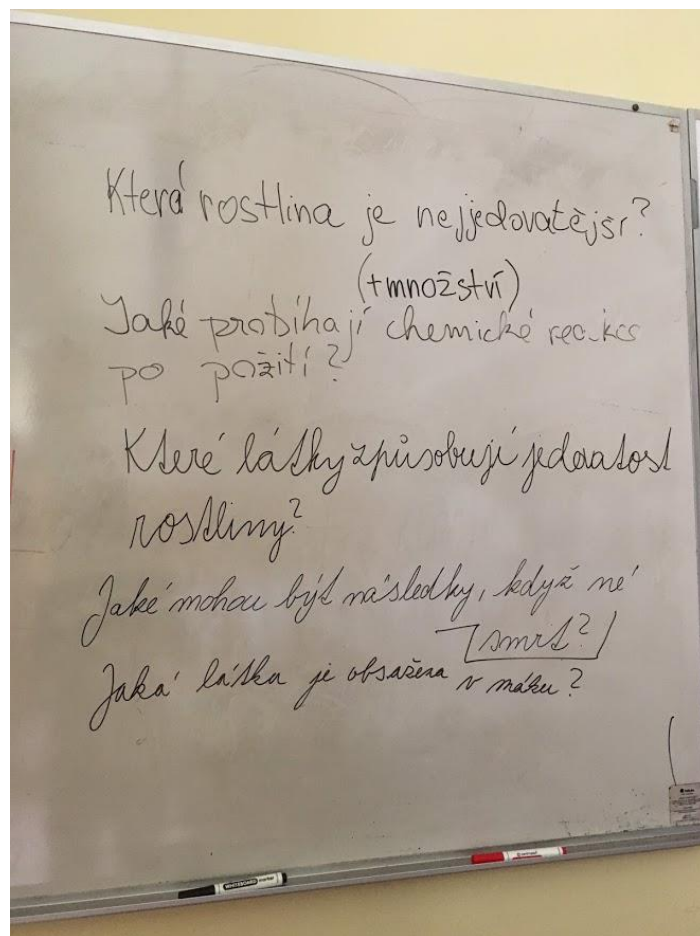 Která rostlina je nejjedovatější?
(+množství)
Jaké probíhají chemické reakce
po požití?
Které látky způsobují jedovatost
rostliny?
Jaké mohou být následky, když né
smrt?
Jaká látka je obsažena v máku?
WHITEBOARD marker